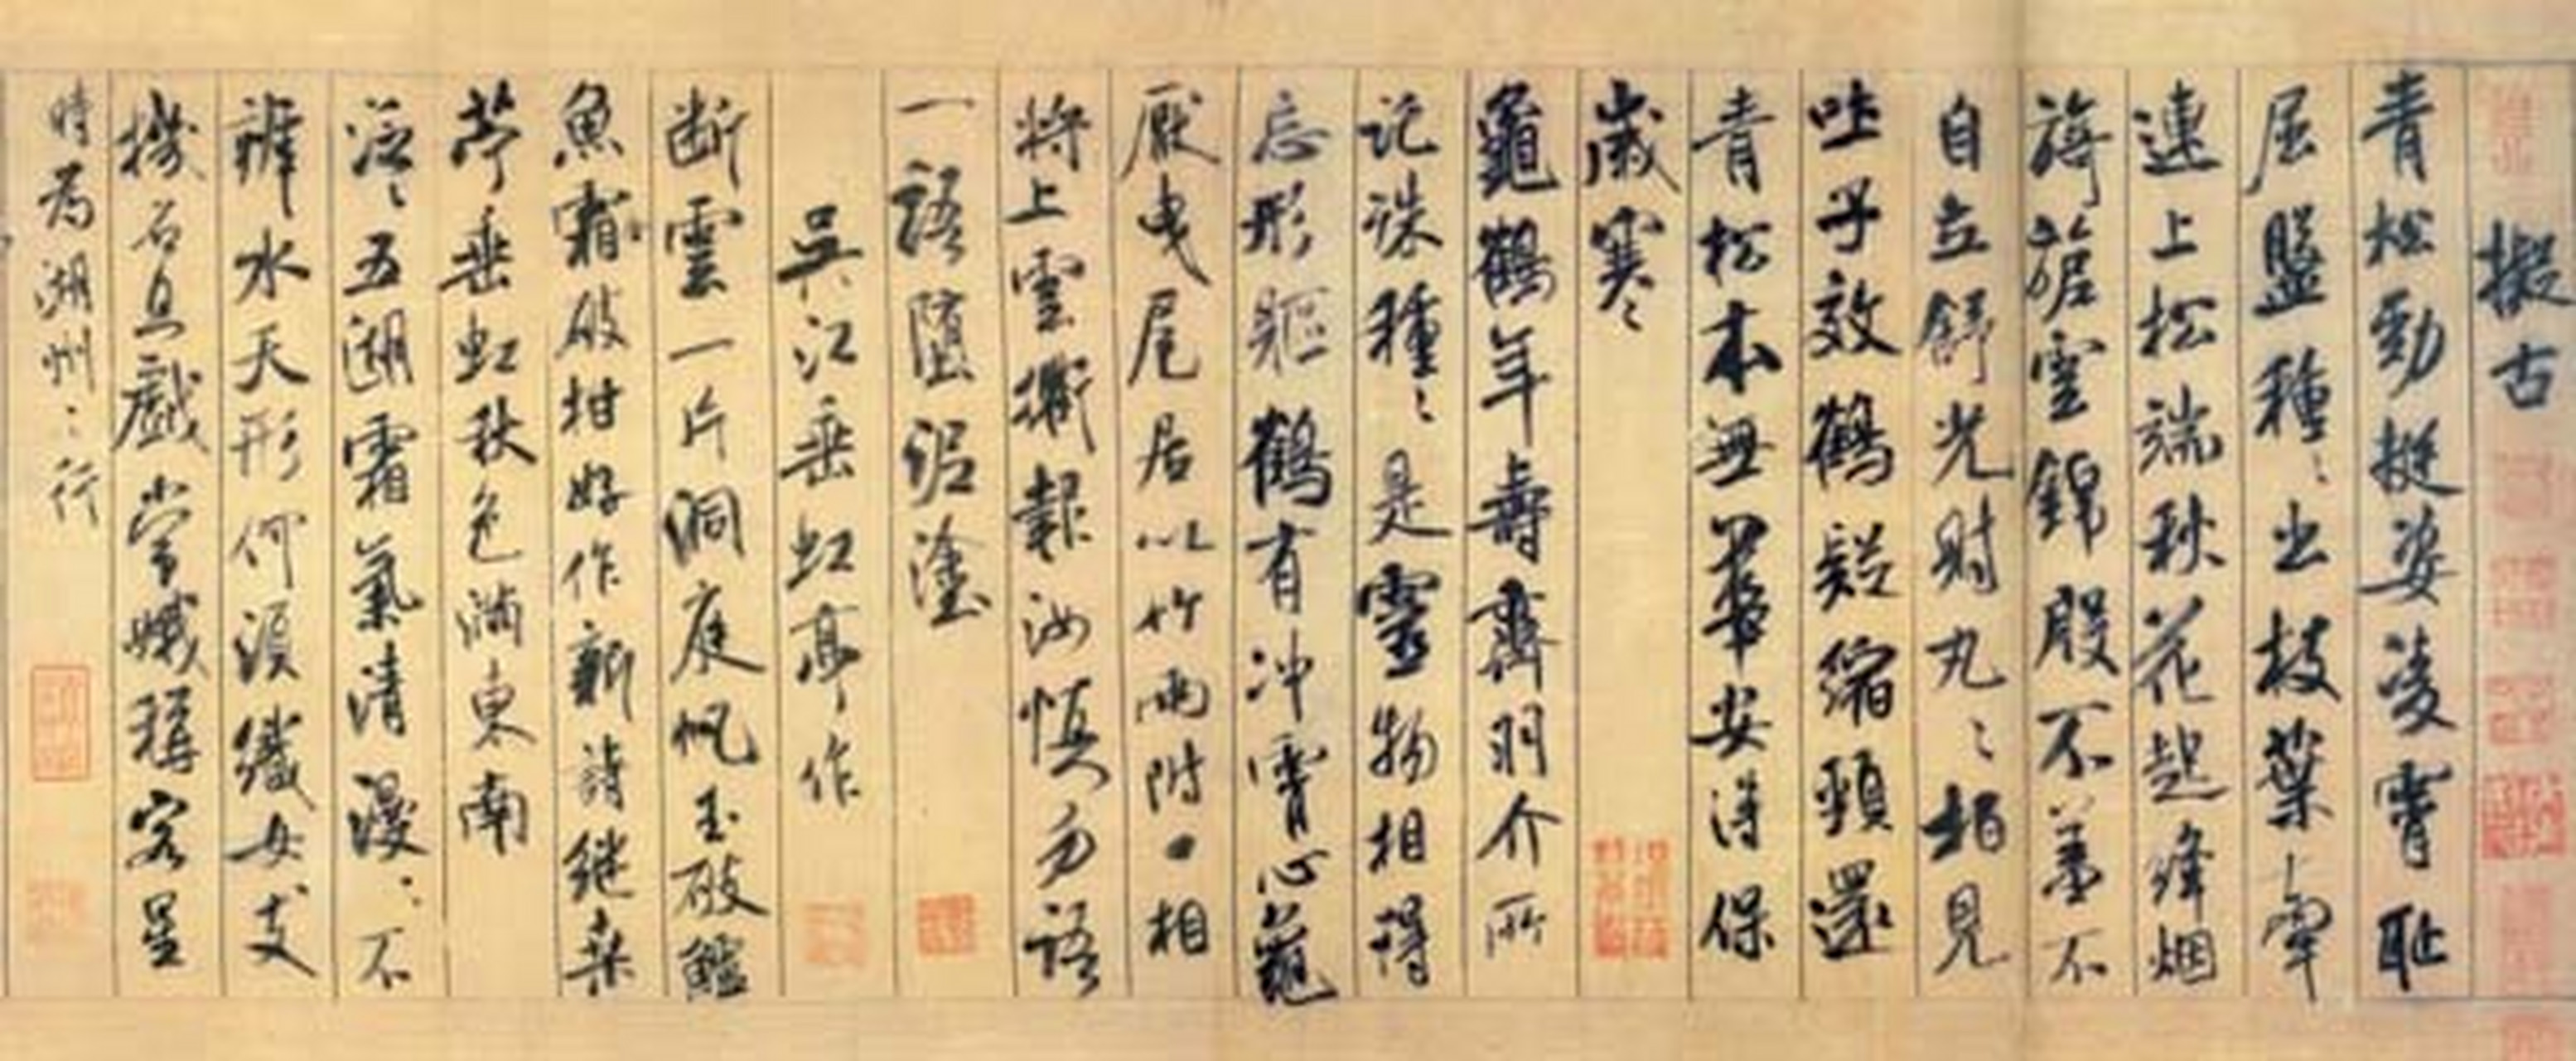 擬古
青松勁挺姿凌霄耻
屈盤種々出枝葉牽
連上松端秋花起絳烟
旖旎雲錦殷不羞不
自立舒光射丸々栢見
吐子效鶴疑縮頸還
青松本無華安得保
歲寒々
龜鶴年壽齊羽介所
託殊種々是靈物相得
忘形軀鶴有冲霄心龜
厭曳尾居以竹兩附口相
將上雲衢報汝慎勿語
一語墮泥塗
吳江垂虹亭作
断雲一片洞庭帆玉破鱸
魚霜破柑好作新詩継桑
苧垂虹秋色滿東南
泛々五湖霜氣清漫々不
辨水天形何須織女支
機石且戲常娥稱客星
時為湖州之行